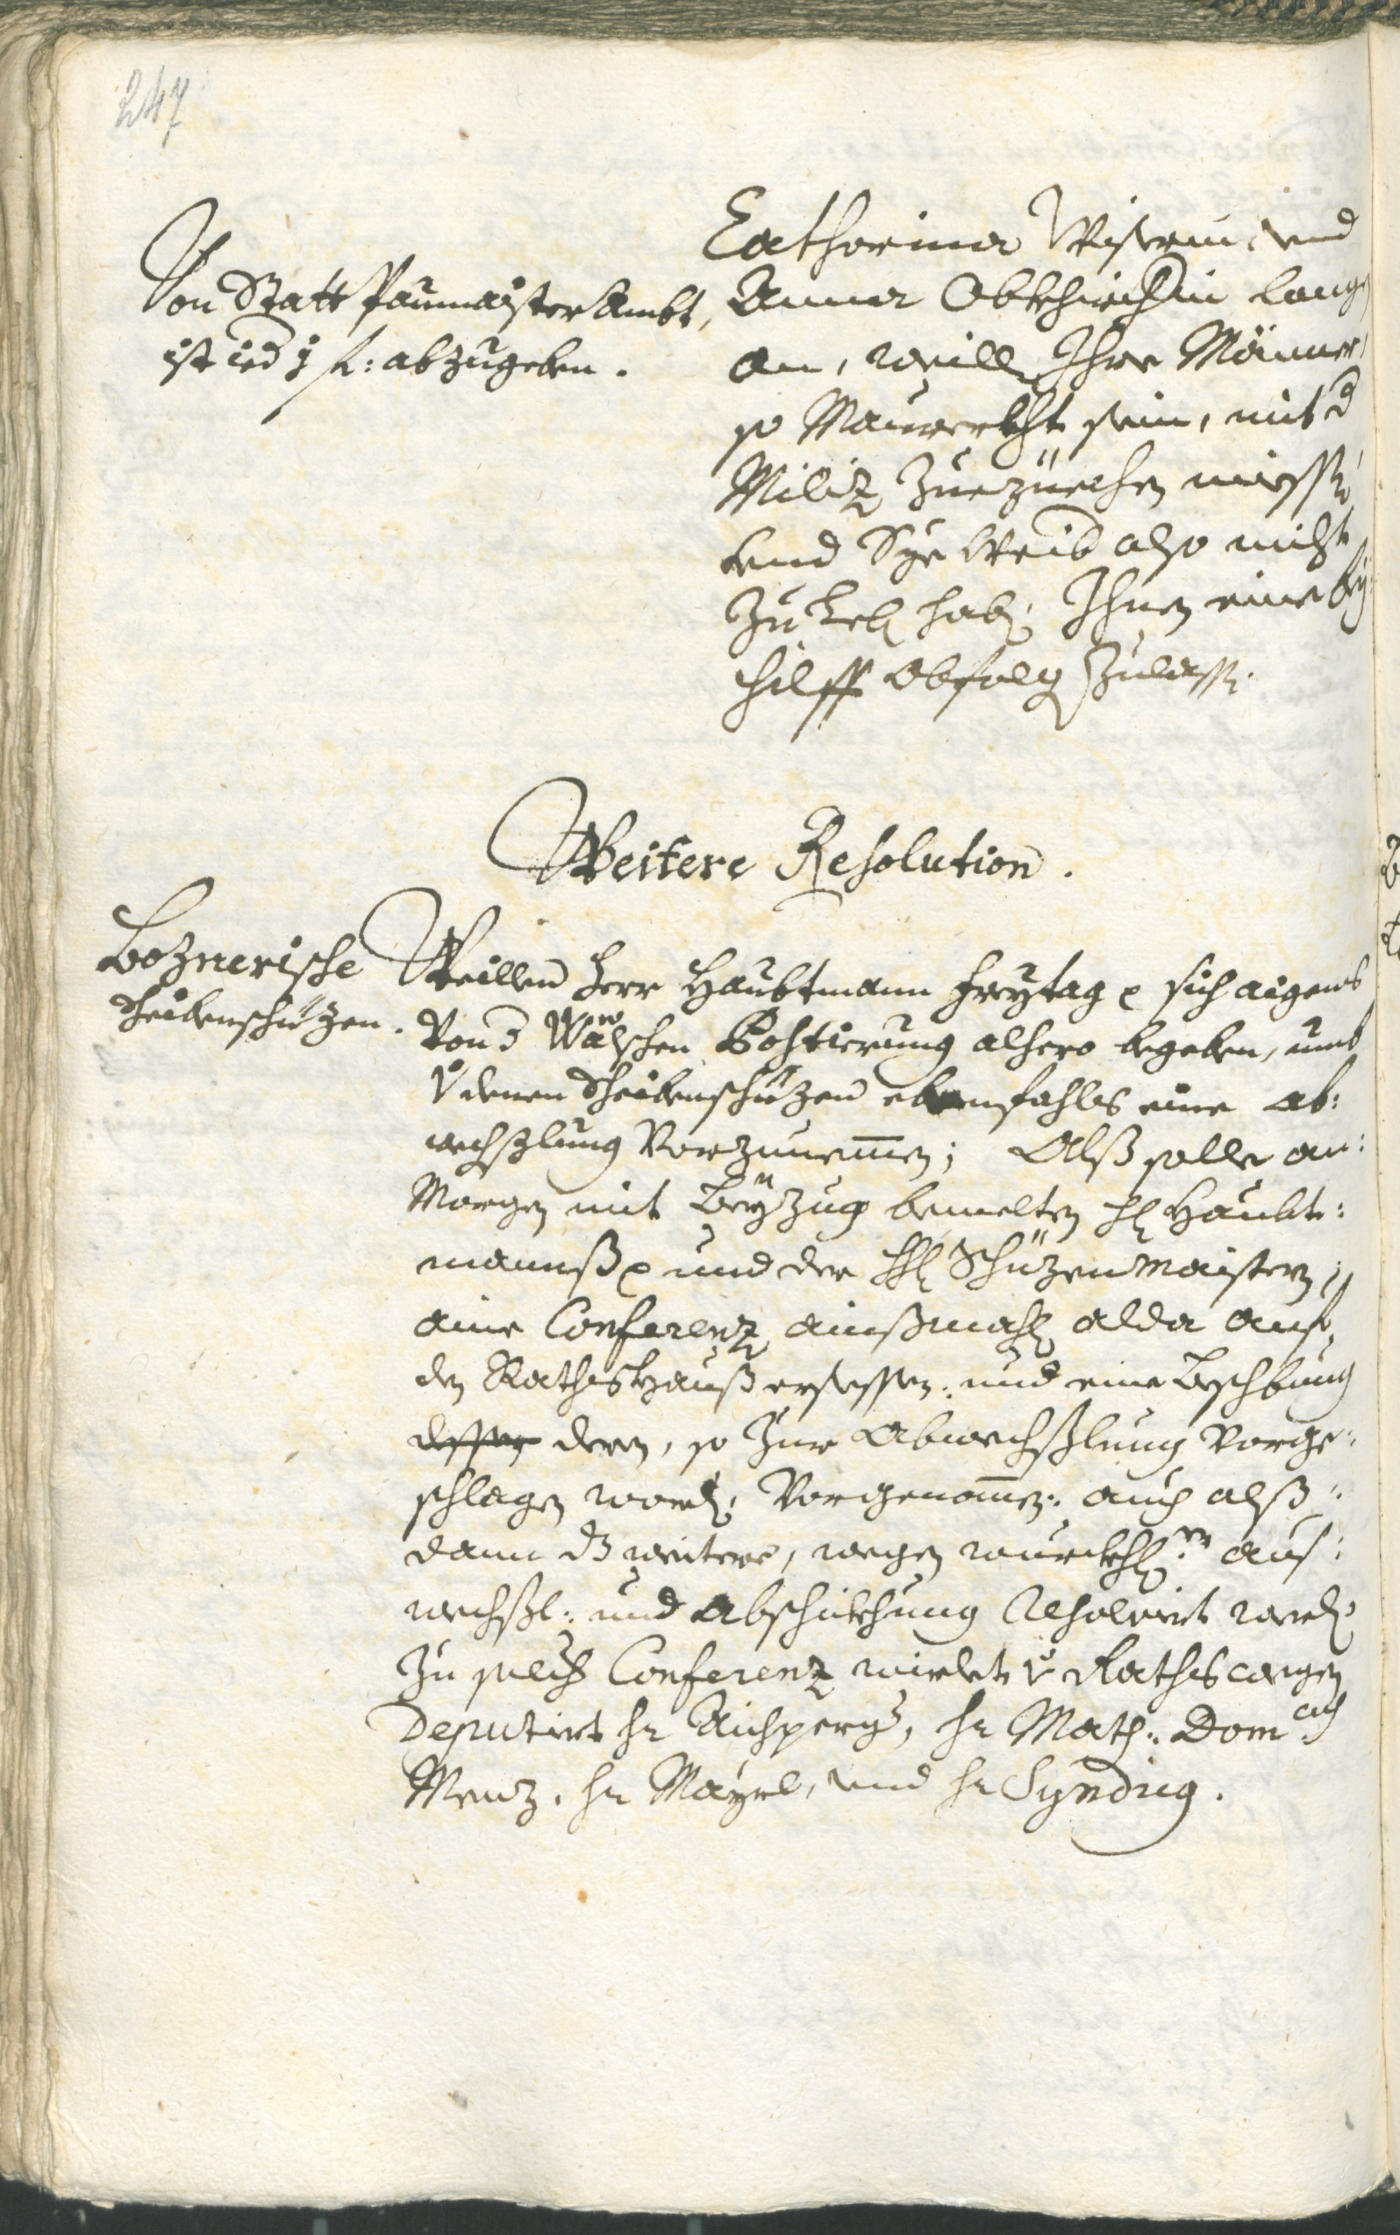 247
Von Statt Paumaister Ambt,
ist ied 1 fl: abzugeben.
Catharina Wiserin, und
Anna Obkhirchin lang
an, weill Ihre Männer
so Maurerkhn sein, mit d
Miliz zuezüechen miessn
und Sye Weib also nicht
zu leb hab, Ihnen eine bey
hilff Abfolg zulassn.
Weitere Resolution.
Boznerische
Scheibenschüzen.
Weillen Herr Haubtmann Freytag p sich aigens
von d Wälschen Postierung alhero begeben, umb
v denen Scheibenschüzen ebenfahls eine Ab:
wechßlung vorzunemen; Alß solle an:
Morgen mit Beyzug bemelten H Haubt:
mannß p und der HH Schüzenmaistern,
aine Conferenz ainßmahl alda auf
den Rathshauß ersessen: und eine Beschbung
dessen deren, so zur Abwechßlung vorge:
schlagen word, vorgenomen: auch alß:
dann dz weitere, wegen würckhl:en auß:
wechßl: und Abschickhung Resolvirt werd
Zu solch Conferenz wirdet v Raths wegen
Deputirt hr Aichperg, hr Math: Domci
Menz, hr Mayrl, und hr Syndicg.